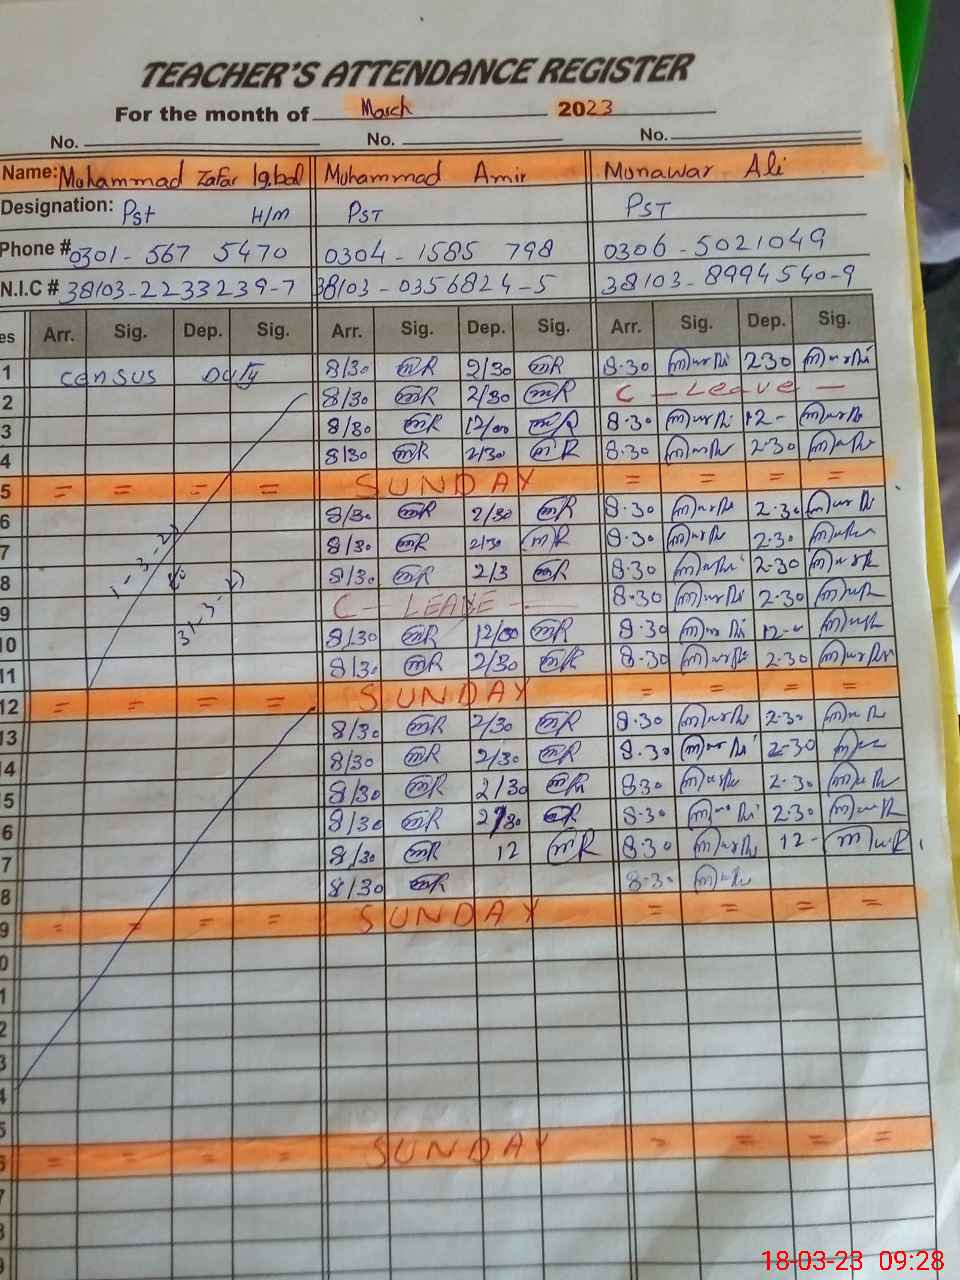 TEACHER'S ATTENDANCE REGISTER
For the month of March 2023
No. No. No.
Name: Mohammad Zafar Iqbal Mohammad Amir Monawar Ali
Designation: Pst H/M PST PST
Phone # 0301-567 5470 0304-1585 798 0306-5021049
N.I.C # 38103-2233239-7 38103-0356824-5 38103-8994540-9
es Arr. Sig. Dep. Sig. Arr. Sig. Dep. Sig. Arr. Sig. Dep. Sig.
1 Census Duty 8/30 2/30 8.30 2.30
2 8/30 2/30 C - Leave -
3 8/30 12/00 8.30 12-
4 8/30 2/30 8.30 2.30
5 = = = = SUNDAY = = = =
6 8/30 2/30 8.30 2.30
7 8/30 2/30 8.30 2.30
8 1-3-23 8/30 2/3 8.30 2.30
9 31-3-23 C - LEAVE - 8.30 2.30
10 8/30 12/00 8.30 12-
11 8/30 2/30 8.30 2.30
12 = = = = SUNDAY = = = =
13 8/30 2/30 8.30 2.30
14 8/30 2/30 8.30 2.30
5 8/30 2/30 830 2.30
6 8/30 2/30 8.30 2.30
7 8/30 12 8.30 12-
8 8/30 8.30
9 = = = = SUNDAY = = = =
0
1
2
3
4
5
6 = = = = SUNDAY = = = =
7
8
9
18-03-23 09:28